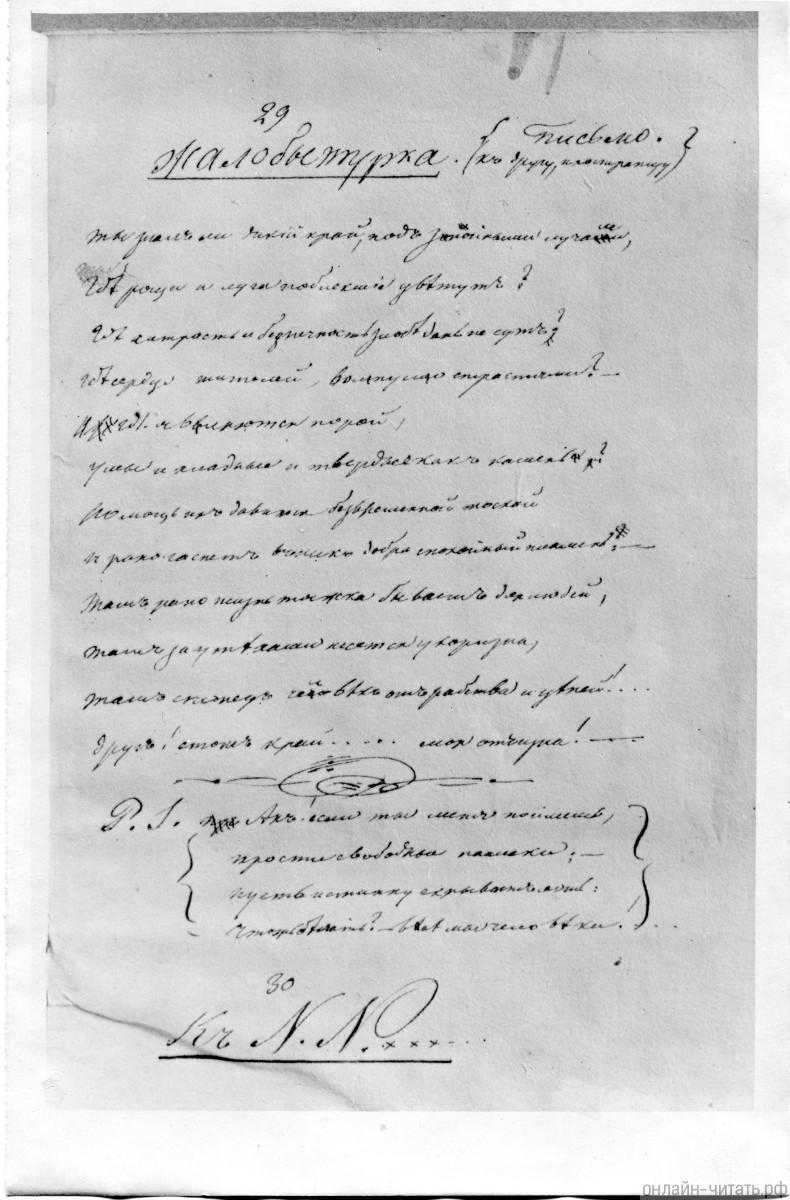 29
Жалобы турка. (письмо.
къ другу, иностранцу)
Ты зналъ ли дикій край, подъ знойными лучами,
Гдѣ рощи и луга поблекшіе цвѣтутъ?
Гдѣ хитрость и безпечность злобѣ дань несутъ?
Гдѣ сердце жителей волнуемо страстями? —
И гдѣ являются порой,
Умы и хладные и твердые какъ камень?
Но мощь ихъ давится безвременной тоской
И рано гаснетъ въ нихъ добра спокойный пламень. —
Тамъ рано жизнь тяжка бываетъ для людей,
Тамъ за утѣхами несется укоризна,
Тамъ стонетъ человѣкъ отъ рабства и цѣпей!....
Другъ! этотъ край..... моя отчизна! —
P. S. Ахъ! если ты меня поймешь,
Прости свободные намеки; —
Пусть истину скрываетъ ложь:
Чтожъ дѣлать? — всѣ мы человѣки!...
30
Къ N. N. ......
онлайн-читать.рф